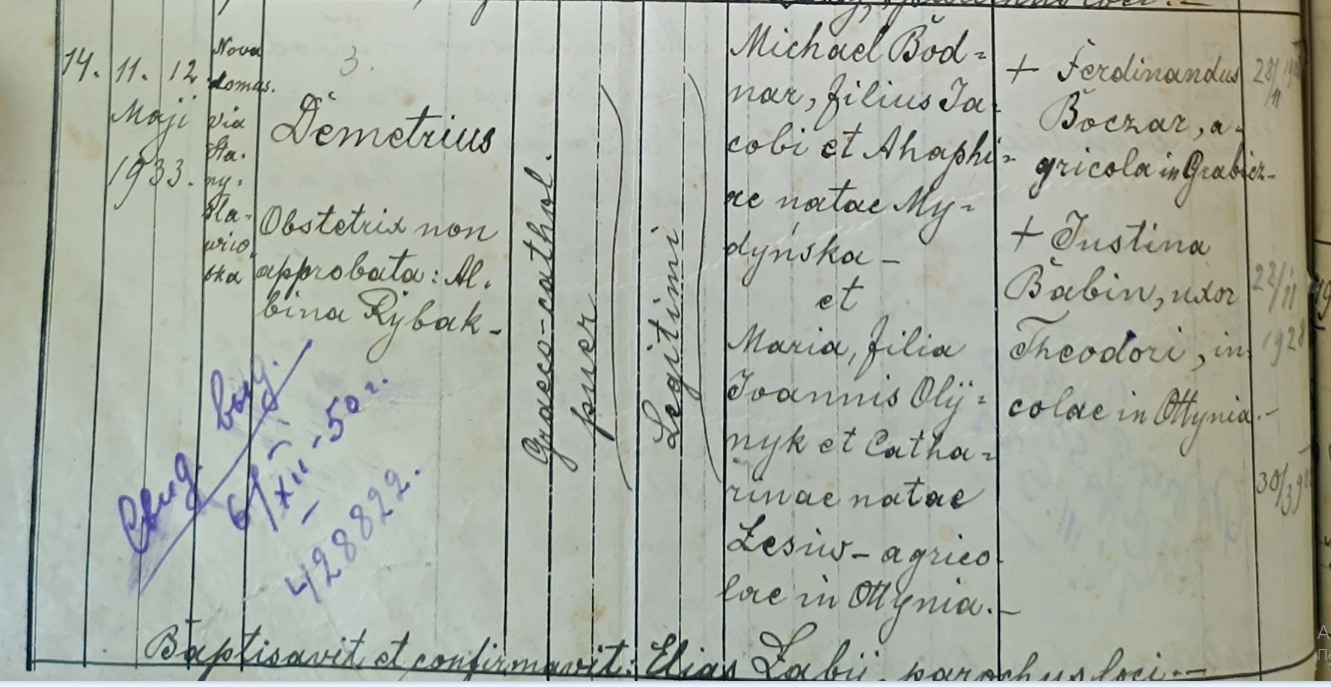 14. 11. 12
Maji
1933.
Nova
domas.
via
Sta-
ny-
sla-
wiw-
ska
3.
Demetrius
Obstetrix non
approbata: Al-
bina Rybak-
Graeco-cathol.
puer
Legitimi
Michael Bod=
nar, filius Ja-
cobi et Ahaphi=
ae natae My=
dyńska -
et
Maria, filia
Joannis Olij=
nyk et Catha=
rinae natae
Lesiw - agrico-
lae in Ottynia.-
+ Ferdinandus
Boczar, a-
gricola in Grabicz-
+ Justina
Babin, uxor
Theodori, in-
colae in Ottynia.-
28/11
22/11
1928
30/3
Свид. выд.
6/XII-50 г.
428822.
Baptisavit et confirmavit: Elias Zabij, parochus loci.-